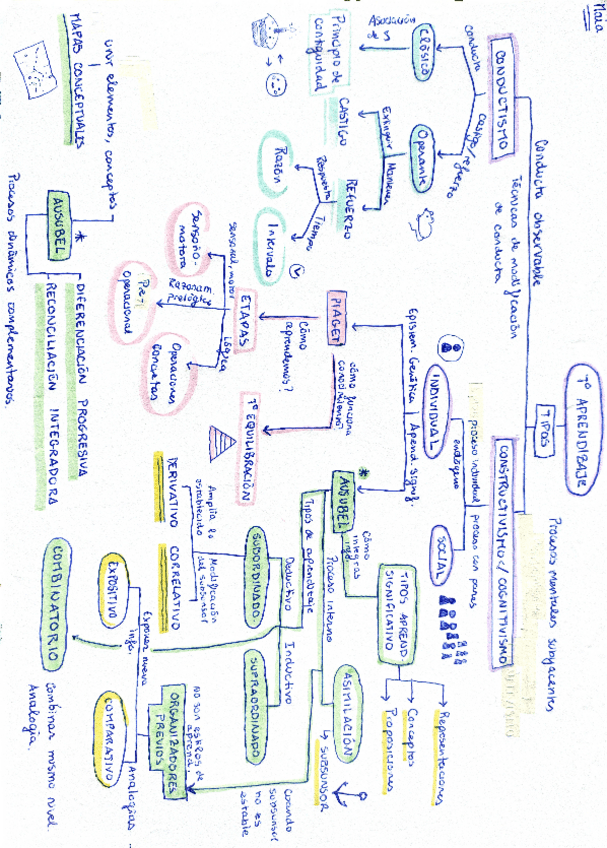 Maia.
Tº APRENDIZAJE
TIPOS
CONDUCTISMO
Conducta observable
Técnicas de modificación
de conducta
CONSTRUCTIVISMO c/ COGNITIVISMO
Procesos mentales subyacentes
conducta
castigo/refuerzo
Clásico
Asociación
Principio de
contigüidad
Operante
Extinguir
Mantener
CASTIGO
REFUERZO
Respuesta
Tiempo
Razón
Intervalo
proceso individual
endógeno
proceso con pares
INDIVIDUAL
SOCIAL
Epistem. Genética
Aprend. signif.
PIAGET
Cómo
aprendemos?
cómo funciona
conocimiento?
ETAPAS
Tº EQUILIBRACIÓN
sensorial, motor
Razonam.
prelógico
Lógica
Sensorio-
motora
Pre-
Operacional
Operaciones
concretas
AUSUBEL
Cómo
integras
TIPOS APREND
SIGNIFICATIVO
Representaciones
Conceptos
Proposiciones
Proceso interno
ASIMILACIÓN
↳ SUBSUNSOR
Tipos de aprendizaje
Deductivo
Inductivo
SUBORDINADO
SUPRAORDINADO
Amplía lo
establecido
Modificación
del subsunsor
DERIVATIVO
CORRELATIVO
COMBINATORIO
Combinar mismo nivel.
Analogía.
Cuando
subsunsor
no es
estable
ORGANIZADORES
PREVIOS
no son estilos de
aprend.
Exponer nueva
info.
Analogías
EXPOSITIVO
COMPARATIVO
MAPAS CONCEPTUALES
unir elementos, conceptos
* AUSUBEL
DIFERENCIACIÓN PROGRESIVA
RECONCILIACIÓN INTEGRADORA
Procesos dinámicos complementarios.